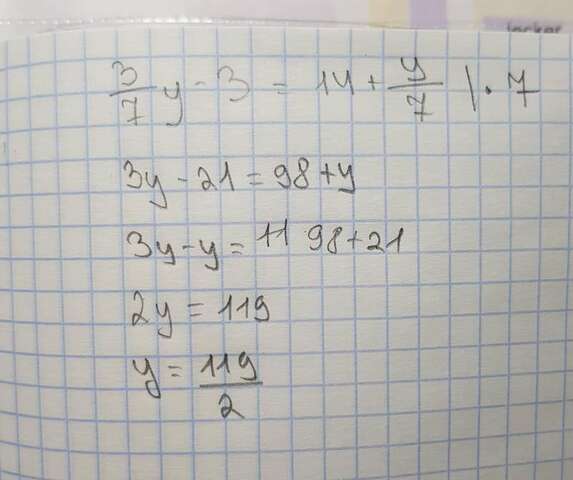 3/7 y - 3 = 14 + y/7 | · 7
3y - 21 = 98 + y
3y - y = 11 98 + 21
2y = 119
y = 119/2